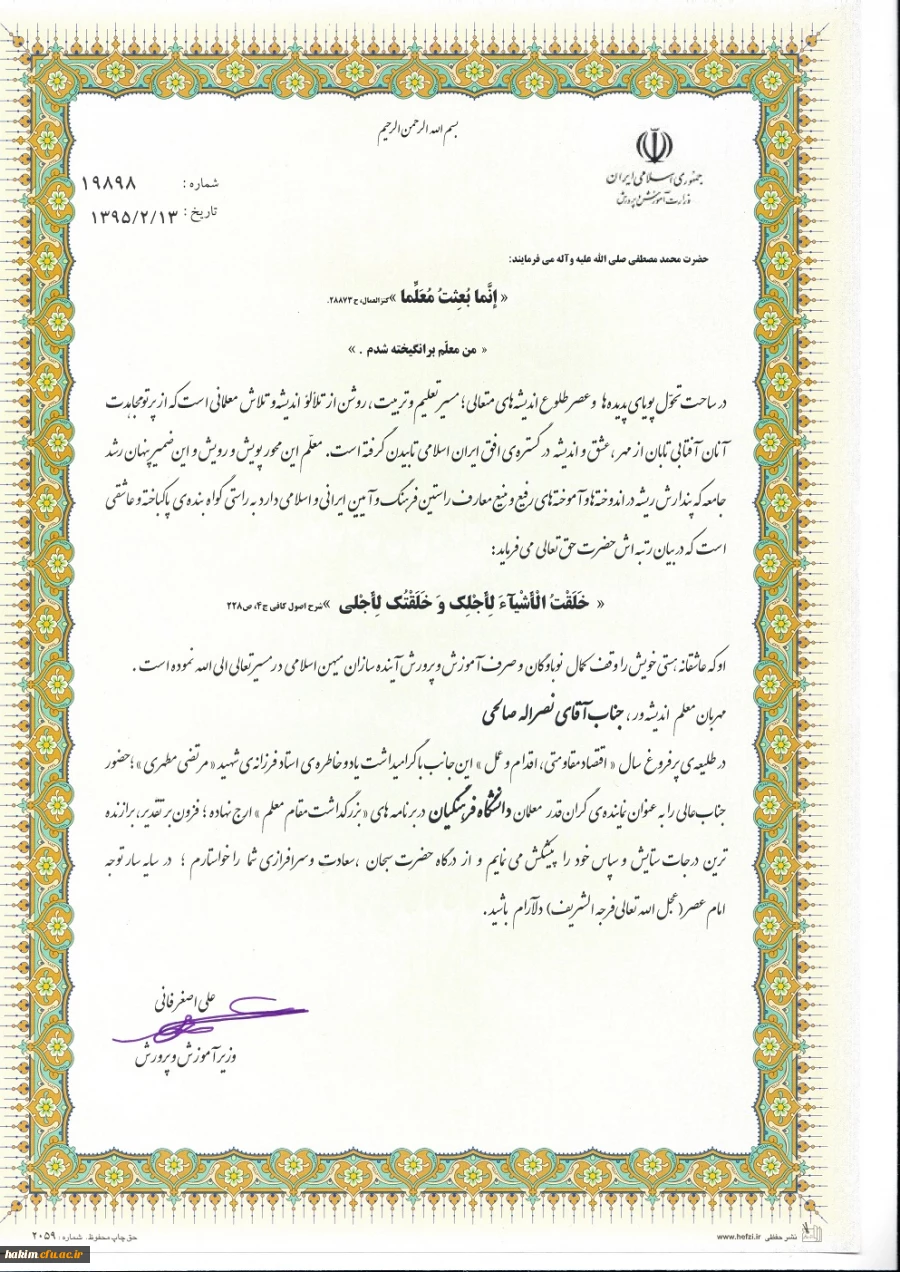 بسم الله الرحمن الرحیم
جمهوری اسلامی ایران
وزارت آموزش و پرورش
شماره : ۱۹۸۹۸
تاریخ : ۱۳۹۵/۲/۱۳
حضرت محمد مصطفی صلی الله علیه وآله می فرمایند:
« إنَّما بُعِثتُ مُعَلِّما »کنزالعمال، ح۲۸۸۷۳.
« من معلّم برانگیخته شدم . »
در ساحت تحوّل پویای پدیده ها و عصر طلوع اندیشه های متعالی؛ مسیر تعلیم و تربیت، روشن از تلألؤ اندیشه و تلاش معلمانی است که از پرتو مجاهدت
آنان آفتابی تابان از مهر ،عشق و اندیشه در گستره ی افق ایران اسلامی تابیدن گرفته است. معلّم این محور پویش و رویش و این ضمیر پنهان رشد
جامعه که پندارش ریشه در اندوخته ها و آموخته های رفیع و منیع معارف راستین فرهنگ و آیین ایرانی و اسلامی دارد به راستی گواه بنده ی پاکباخته و عاشقی
است که در بیان رتبه اش حضرت حق تعالی می فرماید:
« خَلَقْتُ الْأَشْیآءَ لِأَجْلِکَ وَ خَلَقْتُکَ لِأَجْلی »شرح اصول کافی ج۴، ص۲۲۸
او که عاشقانه هستی خویش را وقف کمال نوباوگان و صرف آموزش و پرورش آینده سازان میهن اسلامی در مسیر تعالی الی الله نموده است .
مهربان معلم اندیشه ور ، جناب آقای نصراله صالحی
در طلیعه ی پرفروغ سال « اقتصاد مقاومتی، اقدام و عمل » این جانب با گرامیداشت یاد و خاطره ی استاد فرزانه ی شهید « مرتضی مطهری »؛ حضور
جناب عالی را به عنوان نماینده ی گران قدر معلمان دانشگاه فرهنگیان در برنامه های « بزرگداشت مقام معلم » ارج نهاده ؛ فزون بر تقدیر، برازنده
ترین درجات ستایش و سپاس خود را پیشکش می نمایم و از درگاه حضرت سبحان ،سعادت و سرافرازی شما را خواستارم ؛ در سایه سار توجه
امام عصر (عجل الله تعالی فرجه الشریف) دلآرام باشید.
علی اصغر فانی
وزیر آموزش و پرورش
نشر حفظی www.hefzi.ir
حق چاپ محفوظ. شماره : ۲۰۵۹
hakim.cfu.ac.ir